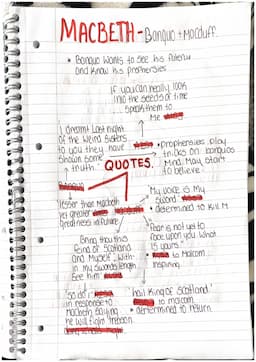 MACBETH - Banquo + Macduff.
• Banquo wants to see his future
and know his prophersies
If you can really look
into the seeds of time
... speak them to
Me
I dreamt Last night
of the Weird Sisters
to you they have
shown some
truth.
• Prophersies play
tricks on banquos
Mind. May start
to believe.
QUOTES.
lesser than Macbeth
yet greater
Greatness in future
My voice is My
sword
• determined to Kill M
Bring thou this
fiend of Scotland
and Myself. With-
in my swords length
Set him
Fear is not yet to
take upon you what
is yours.
to Malcom.
inspiring.
'so do I'
in response to
Macbeth saying
he will fight treason
'hail King of Scotland'
to malcom.
• determined to return